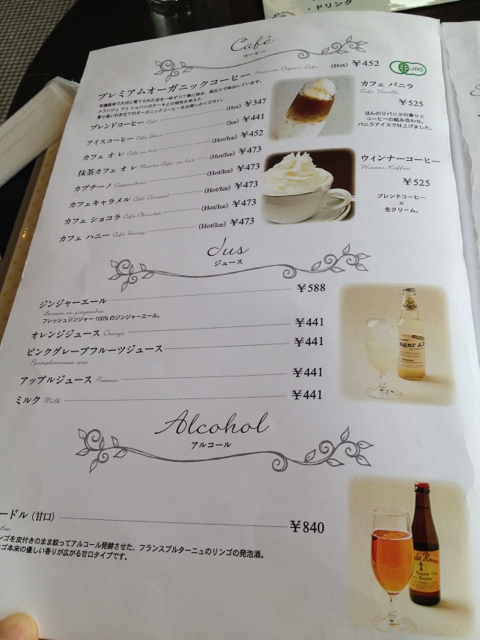 ・ドリンク
Café
コーヒー
プレミアムオーガニックコーヒー Premium Organic Cafe (Hot) ¥452
JAS
ブレンドコーヒー Café (Hot) ¥347
アイスコーヒー Café Glace (Ice) ¥441
カフェ オ レ Café au lait (Hot/Ice) ¥452
抹茶カフェ オ レ Matcha Café au lait (Hot/Ice) ¥473
カプチーノ Cappuccino (Hot/Ice) ¥473
カフェキャラメル Café Caramel (Hot/Ice) ¥473
カフェ ショコラ Café Chocolat (Hot/Ice) ¥473
カフェ ハニー Café Honey (Hot/Ice) ¥473
カフェ バニラ
Café Vanille
¥525
ほんのりバニラの香りと
コーヒーの組み合わせ。
バニラアイスで仕上げました。
ウィンナーコーヒー
Wiener Kaffee
¥525
ブレンドコーヒー
×
生クリーム。
Jus
ジュース
ジンジャーエール ¥588
Boisson au gingembre
フレッシュジンジャー100%のジンジャーエール。
オレンジジュース Orange ¥441
ピンクグレープフルーツジュース ¥441
Pamplemousse rose
アップルジュース Pomme ¥441
ミルク Milk ¥441
Alcohol
アルコール
ードル（甘口） ¥840
dre
ンゴを皮付きのまま絞ってアルコール発酵させた、フランスブルターニュのリンゴの発泡酒。
ゴ本来の優しい香りが広がる甘口タイプです。